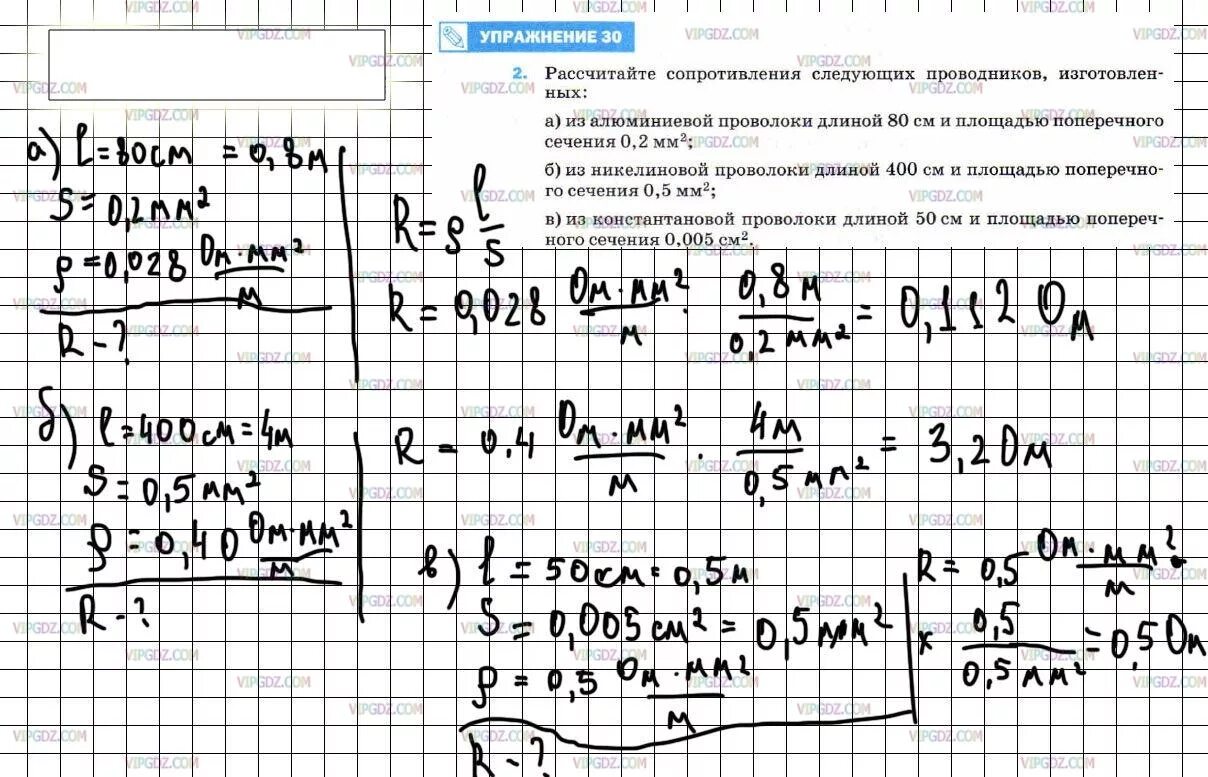 УПРАЖНЕНИЕ 30
2. Рассчитайте сопротивления следующих проводников, изготовлен-
ных:
а) из алюминиевой проволоки длиной 80 см и площадью поперечного
сечения 0,2 мм²;
б) из никелиновой проволоки длиной 400 см и площадью поперечно-
го сечения 0,5 мм²;
в) из константановой проволоки длиной 50 см и площадью попереч-
ного сечения 0,005 см².
а) l = 80см = 0,8м
S = 0,2мм²
ρ = 0,028 Ом·мм²/м
R - ?
R = ρ l/S
R = 0,028 Ом·мм²/м · 0,8м/0,2мм² = 0,112 Ом
б) l = 400см = 4м
S = 0,5мм²
ρ = 0,40 Ом·мм²/м
R - ?
R = 0,4 Ом·мм²/м · 4м/0,5мм² = 3,2 Ом
в) l = 50см = 0,5м
S = 0,005см² = 0,5мм²
ρ = 0,5 Ом·мм²/м
R - ?
R = 0,5 Ом·мм²/м ·
x 0,5/0,5мм² = 0,5 Ом
VIPGDZ.COM